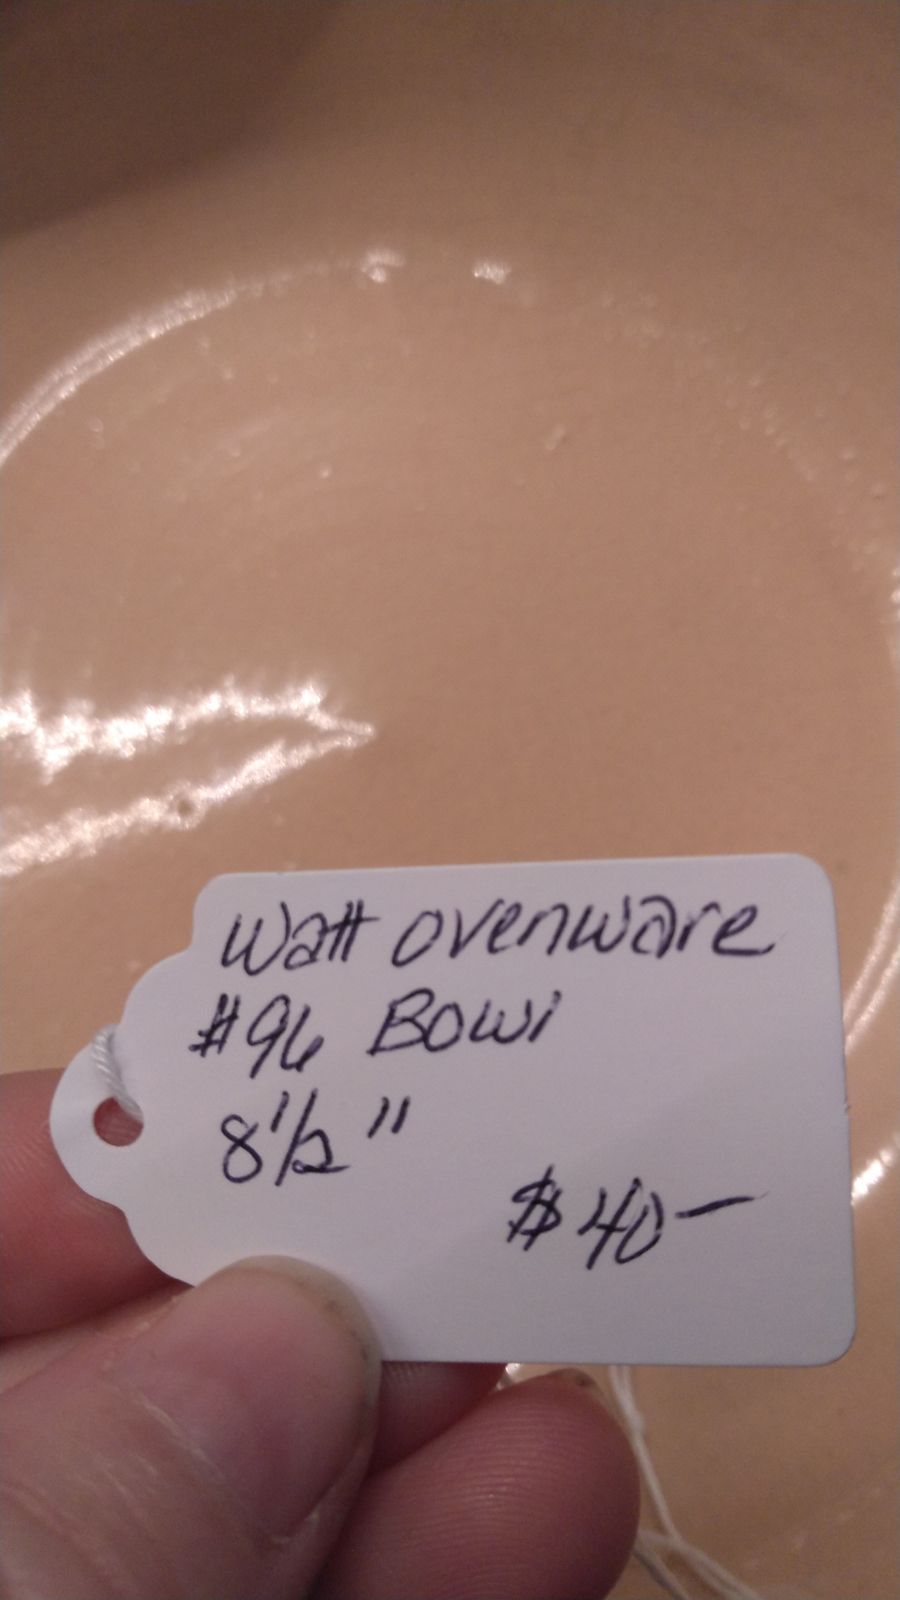 Watt ovenware
#96 Bowl
8 1/2"
$40-